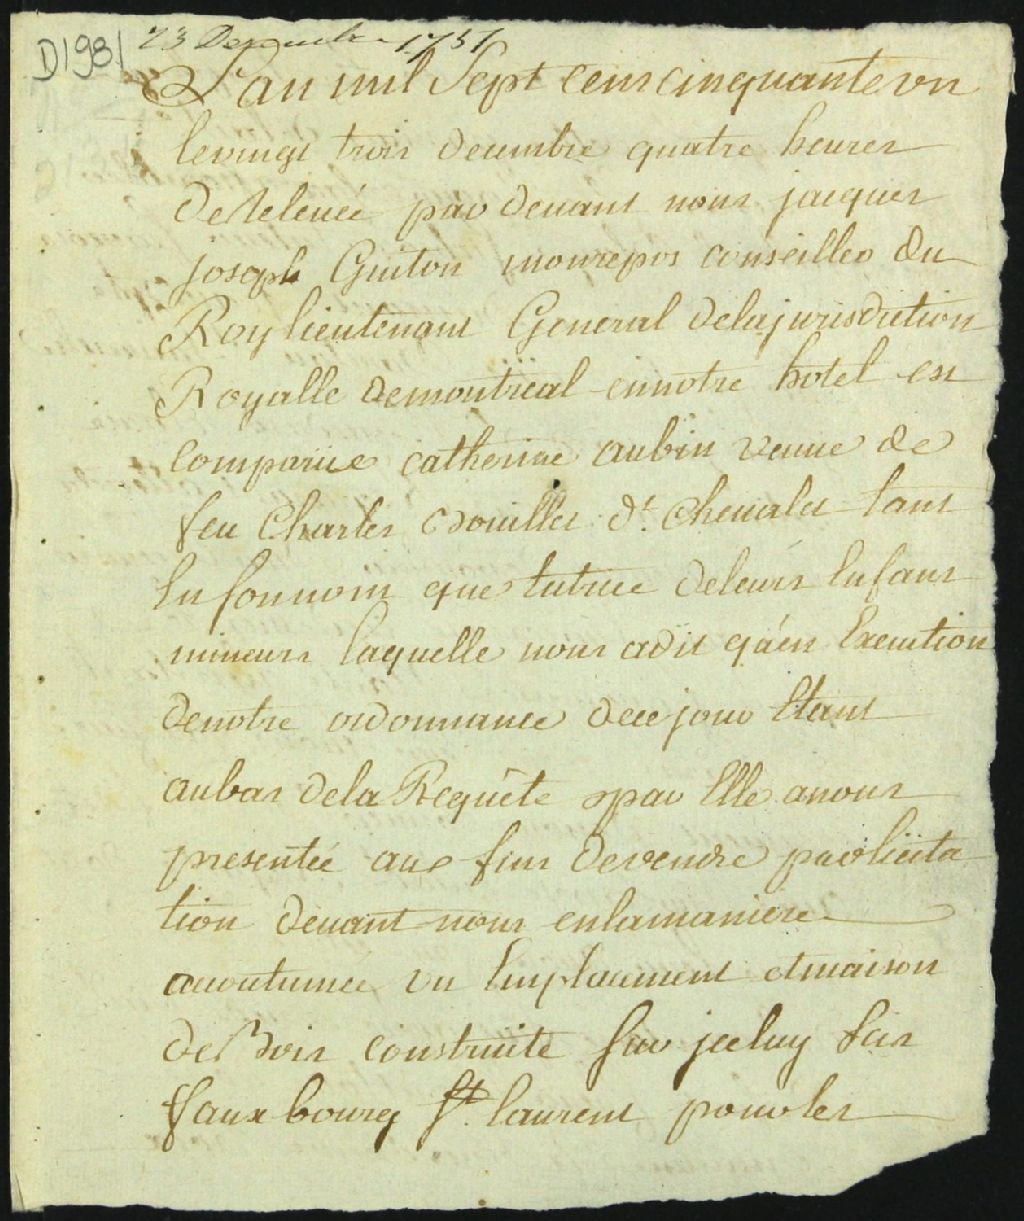 D1981 23 Decembre 1751
L'an mil Sept cens cinquante un
le vingt trois decembre quatre heures
de Relevée par devant nous jacques
joseph Guiton monrepos conseiller du
Roy lieutenant General de la jurisdiction
Royalle de montreal en notre hotel est
comparue catherine aubin veuve de
feu Charles Douillet dt. Chevalet tant
En son nom que tutrice de leurs Enfans
mineurs laquelle nous a dit qu'en Execution
de notre ordonnance de ce jour Etant
au bas de la Requête par Elle a nous
presentée aux fins de vendre par licita
tion devant nous en la maniere
acoutumée un Emplacement et maison
de Bois construite sur jceluy sis
fauxbourg St. laurent pour les